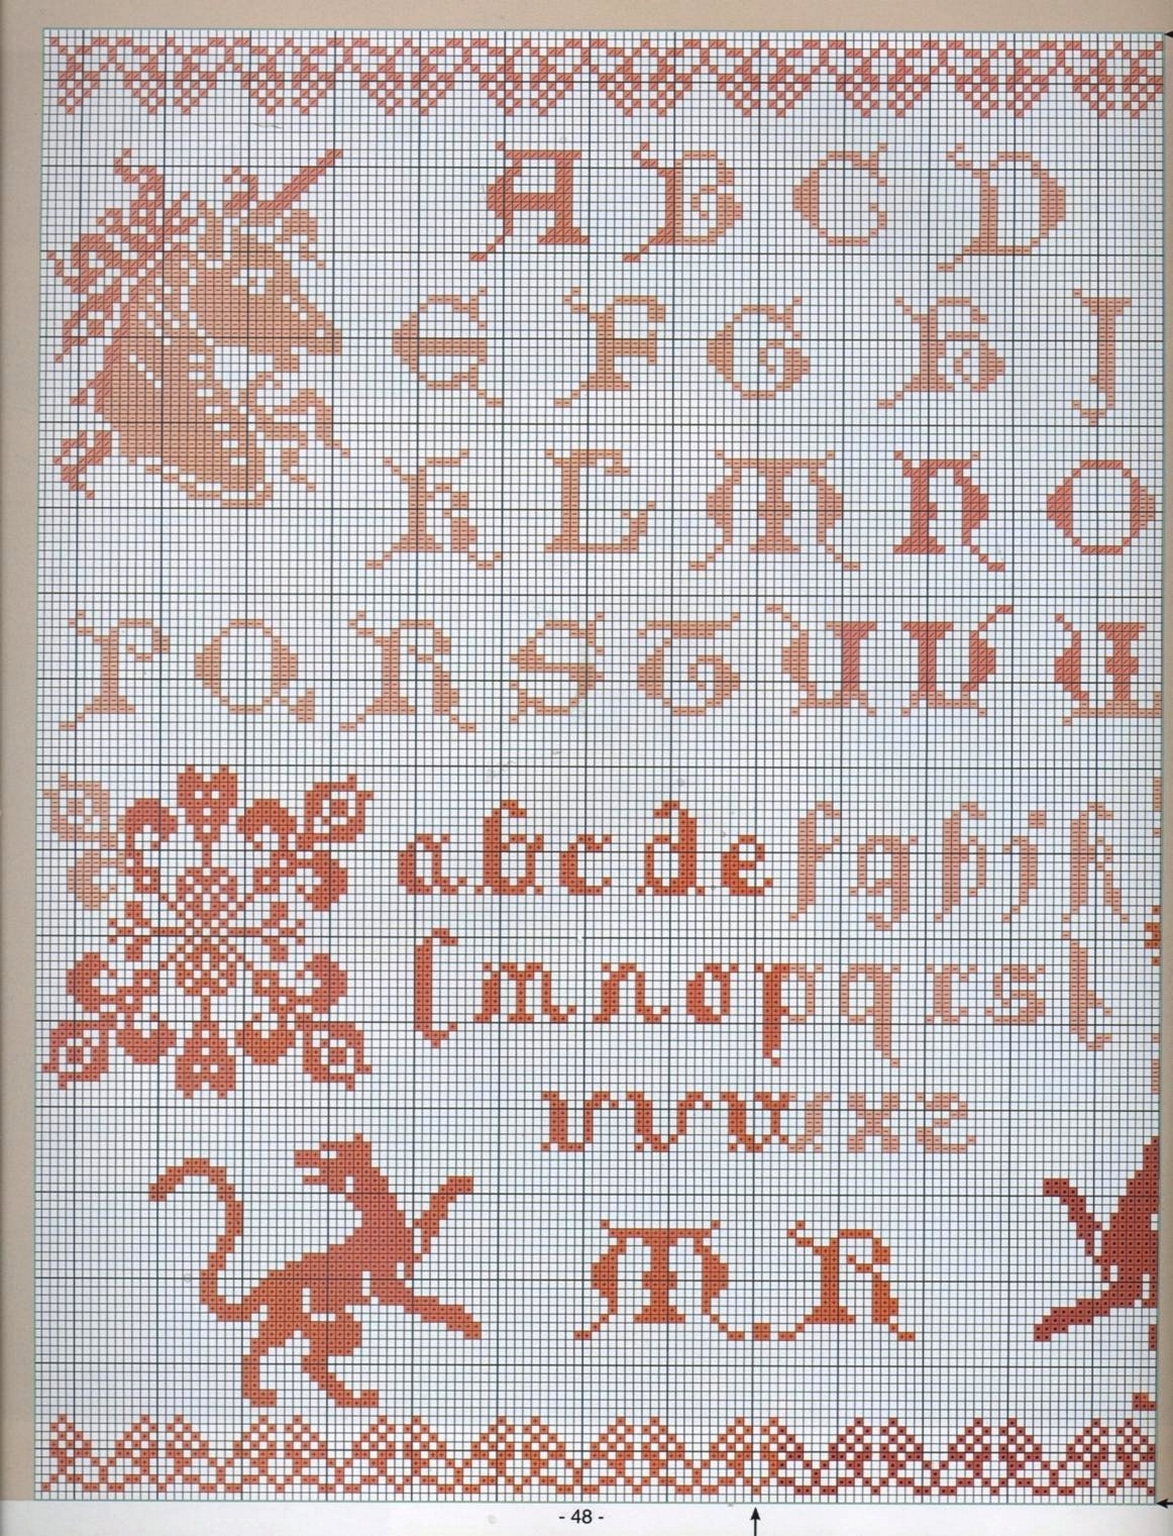 A B C D
E F G H J
K L M N O
P Q R S T U V
a b c d e f g h j k
l m n o p q r s t
u v w x z
M R
- 48 -